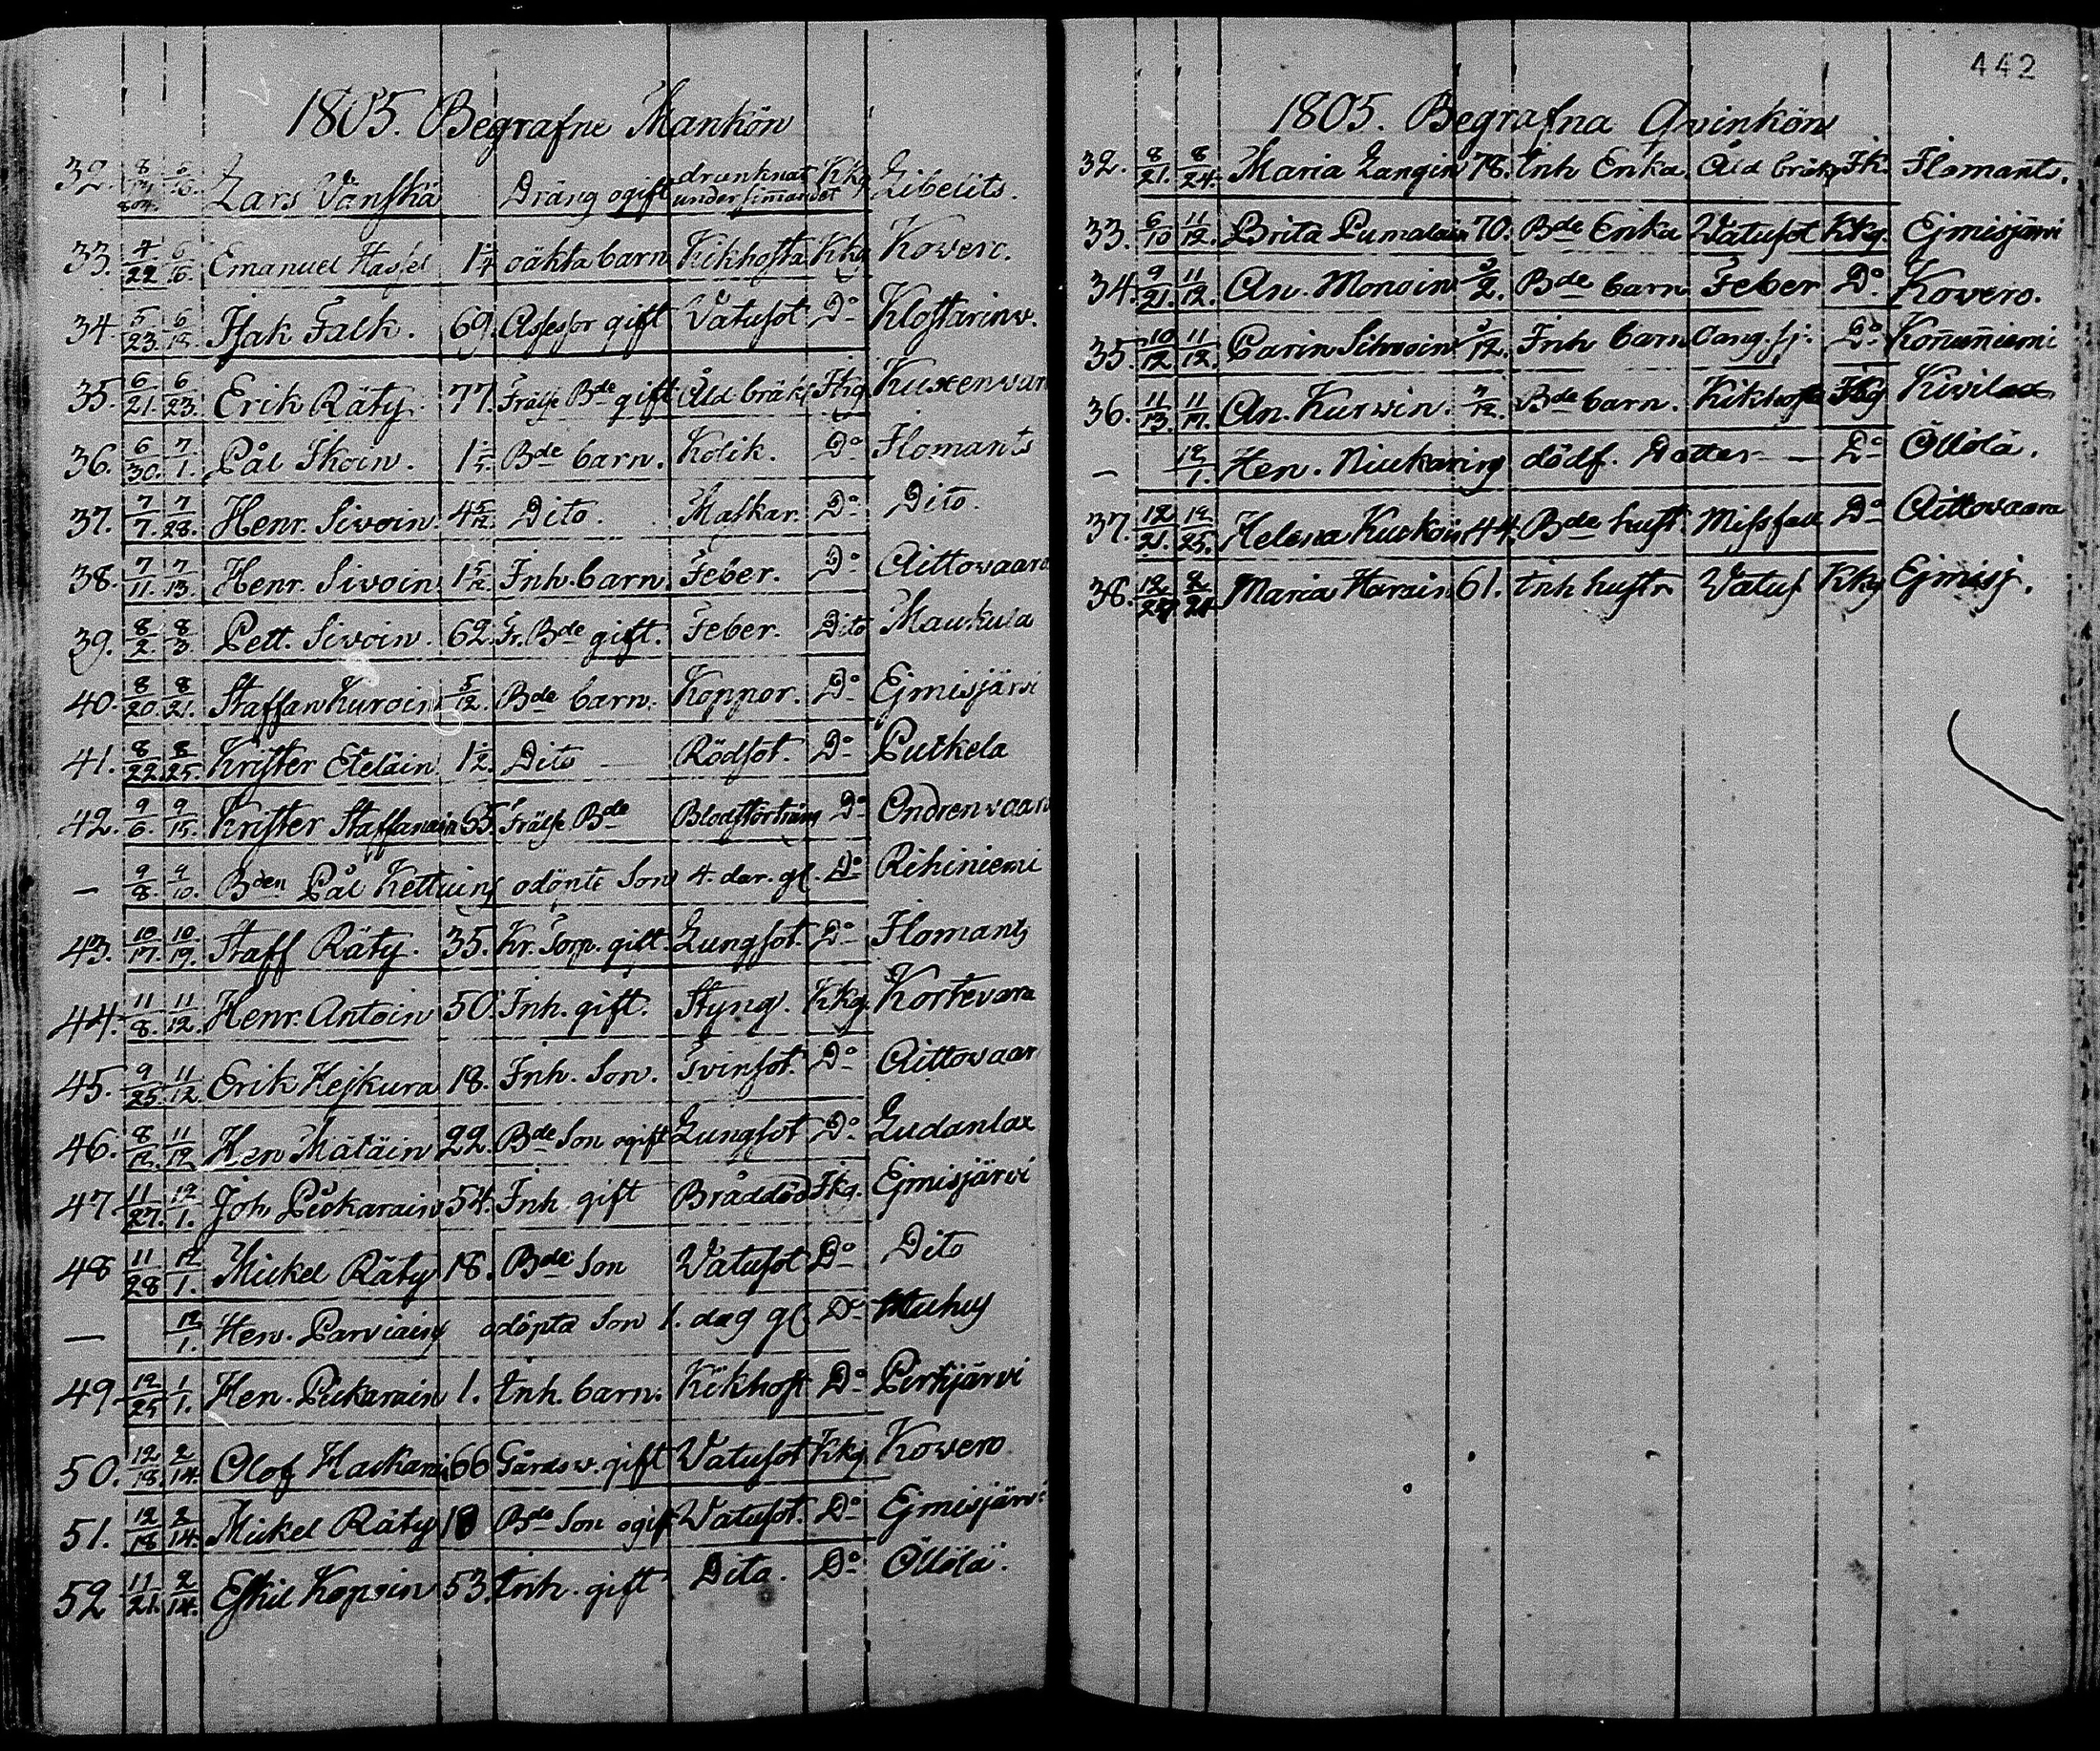 1805. Begrafne Mankön
32. 8/14 804 6/16. Lars Vänskä Dräng ogift drunknat under simmandet Kkg Libelits.
33. 4/22 6/16. Emanuel Hassel 1 1/4 oäkta barn Kikhosta Kkg Kovero.
34. 5/23. 6/18. Isak Falk. 69. Assessor gift Vatusot Do Klostarinv.
35. 6/21. 6/23. Erik Räty. 77. Frälse Bde gift Åld bräkl Ikg Kuxenvar
36. 6/30. 7/1. Pål Ikoin. 1 1/5. Bde barn. Kolik. Do Ilomants
37. 7/7. 7/28. Henr. Sivoin. 4 5/12. Dito. Maskar. Do Dito.
38. 7/11. 7/13. Henr. Sivoin 1 1/2 Inh. barn Feber. Do Aittovaara
39. 8/2 8/3. Pett. Sivoin. 62. Fr. Bde gift. Feber. Dito Maukula
40. 8/20. 8/21. Staffan Kuroin 5/12. Bde barn. Koppor. Do Ejmisjärvi
41. 8/22. 8/25. Krister Eteläin 1 1/2. Dito — Rödsot. Do Putkela
42. 9/6. 9/15. Krister Staffanain 65. Frälse Bde Blodstörtning Do Ondrenvaara
— 9/8. 9/10. Bden Pål Kettuins odöpte Son 4. dar. gl. Do Rihiniemi
43. 10/17. 10/19. Staff Räty. 35. Kr. Torp. gift. Lungsot. Do Ilomants
44. 11/8. 11/12. Henr. Antoin 50. Inh. gift. Styng. Kkg. Kortevara
45. 9/25. 11/12 Erik Hejkura 18. Inh. Son. Tvinsot. Do Aittovaar
46. 8/12. 11/12 Hen Mätäin 22. Bde Son ogift Lungsot Do Ludanlax
47. 11/27. 12/1. Joh Püekarain 54. Inh. gift Bråddöd Ikg. Ejmisjärvi
48 11/28 12/1. Mickel Räty 18. Bde Son Vatusot Do Dito
— 12/1. Hen. Parviains odöpta Son 1. dag gl. Do Muhus
49. 12/25 1/1. Hen. Püekarain 1. Inh. barn. Kikhost Do Pirttijärvi
50. 12/18. 2/14. Olof Hackarai 66 Gårdsv. gift Vatusot Kkg. Kovero
51. 12/18 2/14. Mickel Räty 18 Bde Son ogift Vatusot. Do Ejmisjärvi
52 11/21. 2/14. Eskil Kopoin 53. Inh. gift Dito. Do Öllölä.
442
1805. Begrafna Qvinkön
32. 8/21. 8/24. Maria Langin 78. Inh Enka Åld bräkl Ik. Ilomants.
33. 6/10 11/12. Brita Pumalain 70. Bde Enka Vatusot Kkg. Ejmisjärvi
34. 9/21. 11/12. An. Monoin 3/2. Bde barn Feber Do Kovero.
35. 10/12 11/12. Carin Sihvoin 3/12. Inh barn Lang. sj. Do Konnuniemi
36. 11/13. 11/17. An. Kurvin. 3/12. Bde barn. Kikhosta Ikg Kivilax
— 12/1. Hen. Niukarins dödf. Dotter — Do Öllölä.
37. 12/21. 12/25. Helena Kuokoin 44. Bde hust. Missfall Do Aittovaara
38. 12/24 2/21 Maria Harain. 61. Inh hustr Vatus Kkg Ejmisj.